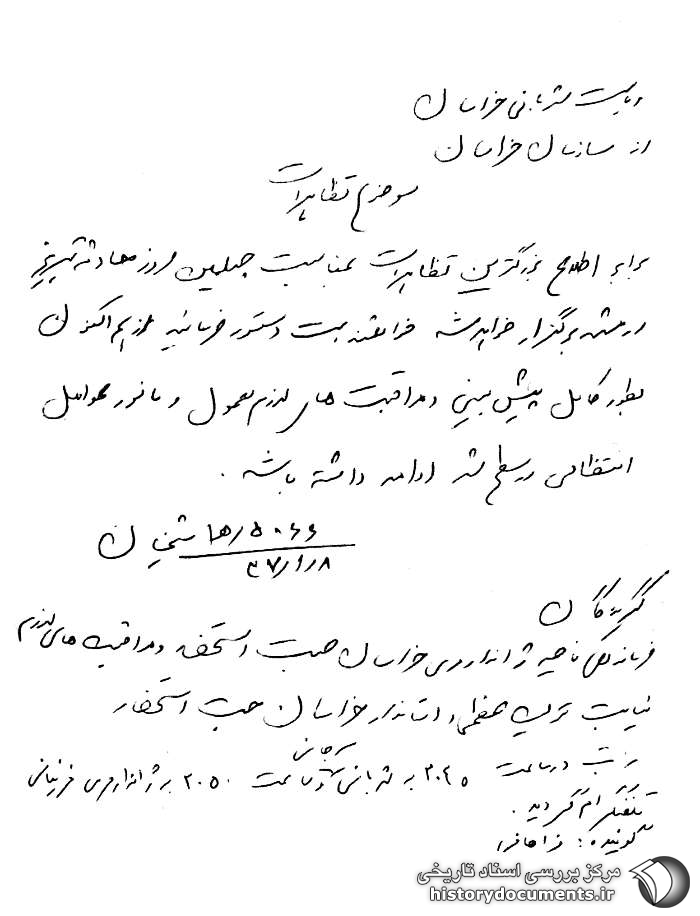 ریاست شهربانی خراسان
از سازمان خراسان
موضوع تظاهرات
برابر اطلاع بزرگترین تظاهرات بمناسبت چهلمین روز حادثه تبریز
در مشهد برگزار خواهد شد خواهشمند است دستور فرمائید از هم اکنون
بطور کامل پیش بینی و مراقبت های لازم معمول و مانور عوامل
انتظامی در سطح شهر ادامه داشته باشد .
شیخان
۳۷/۱/۸
گیرندگان
فرماندهی ناحیه ژاندارمری خراسان جهت استحضار و مراقبت های لازم
نیابت تولیت عظمی و استاندار خراسان جهت استحضار
مراتب در ساعت ۲۰۴۵ به شهربانی و ساعت ۲۰۵۰ به ژاندارمری
تلفنگرام گردید .
گوینده :
مرکز بررسی اسناد تاریخی
historydocuments.ir